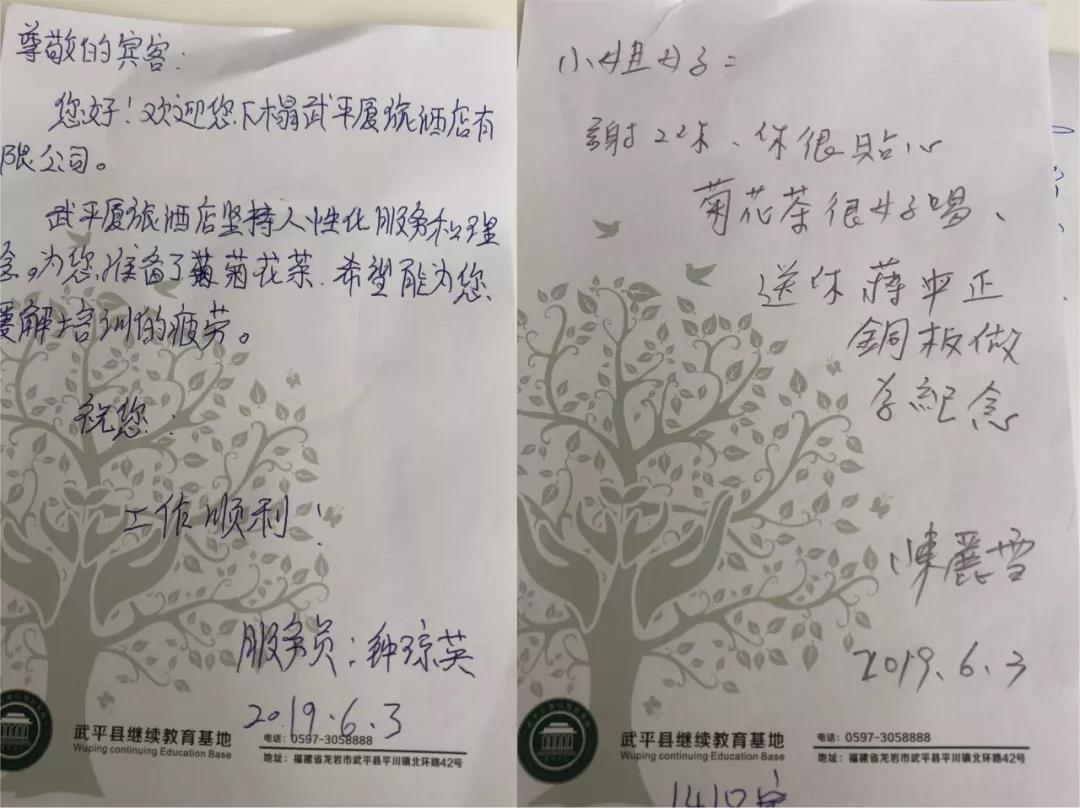 尊敬的宾客：
您好！欢迎您下榻武平厦旅酒店有
限公司。
武平厦旅酒店坚持人性化服务和理
念。为您准备了菊花茶.希望能为您
缓解培训的疲劳。
祝您：
工作顺利！
服务员：钟琼英
2019.6.3
武平县继续教育基地
Wuping continuing Education Base
电话：0597-3058888
地址：福建省龙岩市武平县平川镇北环路42号
小姐姐：
謝謝妳、妳很貼心
菊花茶很好喝、
送妳蔣中正
銅板做
為紀念
陳麗雪
2019.6.3
武平县继续教育基地
Wuping continuing Education Base
电话：0597-3058888
地址：福建省龙岩市武平县平川镇北环路42号
1410房